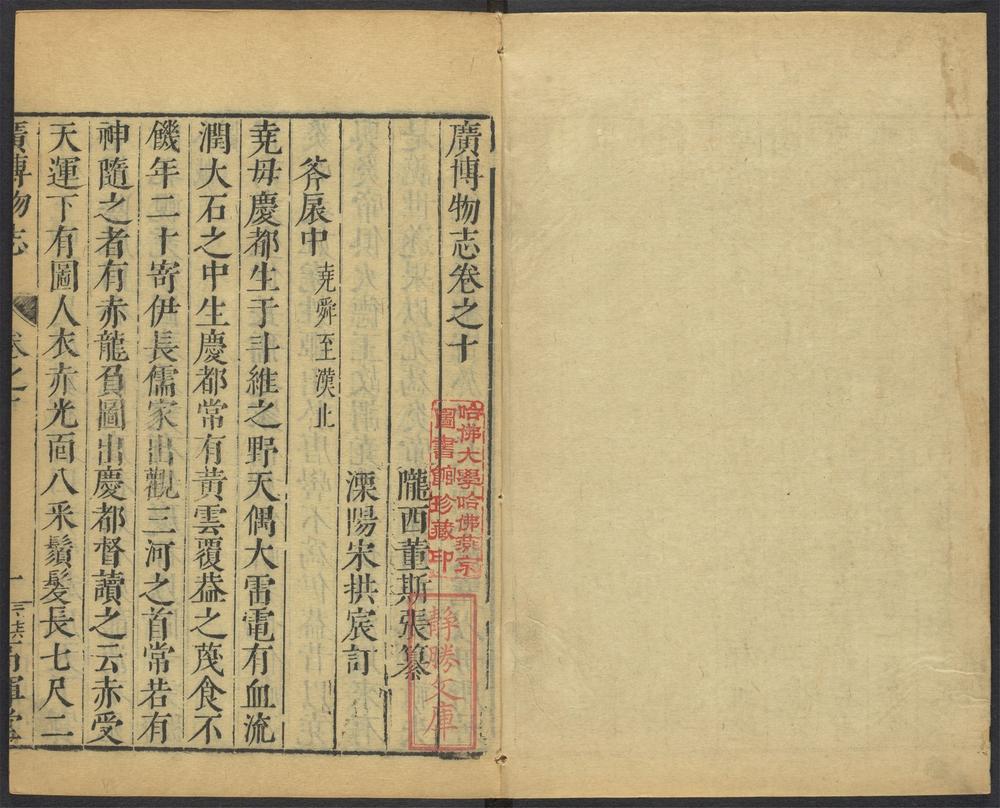 廣博物志卷之十
隴西董斯張纂
溧陽宋拱宸訂
斧扆中堯舜至漢止
堯母慶都生于斗維之野天偶大雷電有血流
潤大石之中生慶都常有黃雲覆葢之蔑食不
饑年二十寄伊長儒家出觀三河之首常若有
神隨之者有赤龍負圖出慶都督讀之云赤受
天運下有圖人衣赤光面八采鬚髮長七尺二
廣博物志
卷之十
一
高暉堂
哈佛大學哈佛燕京
圖書館珍藏印
靜勝文庫